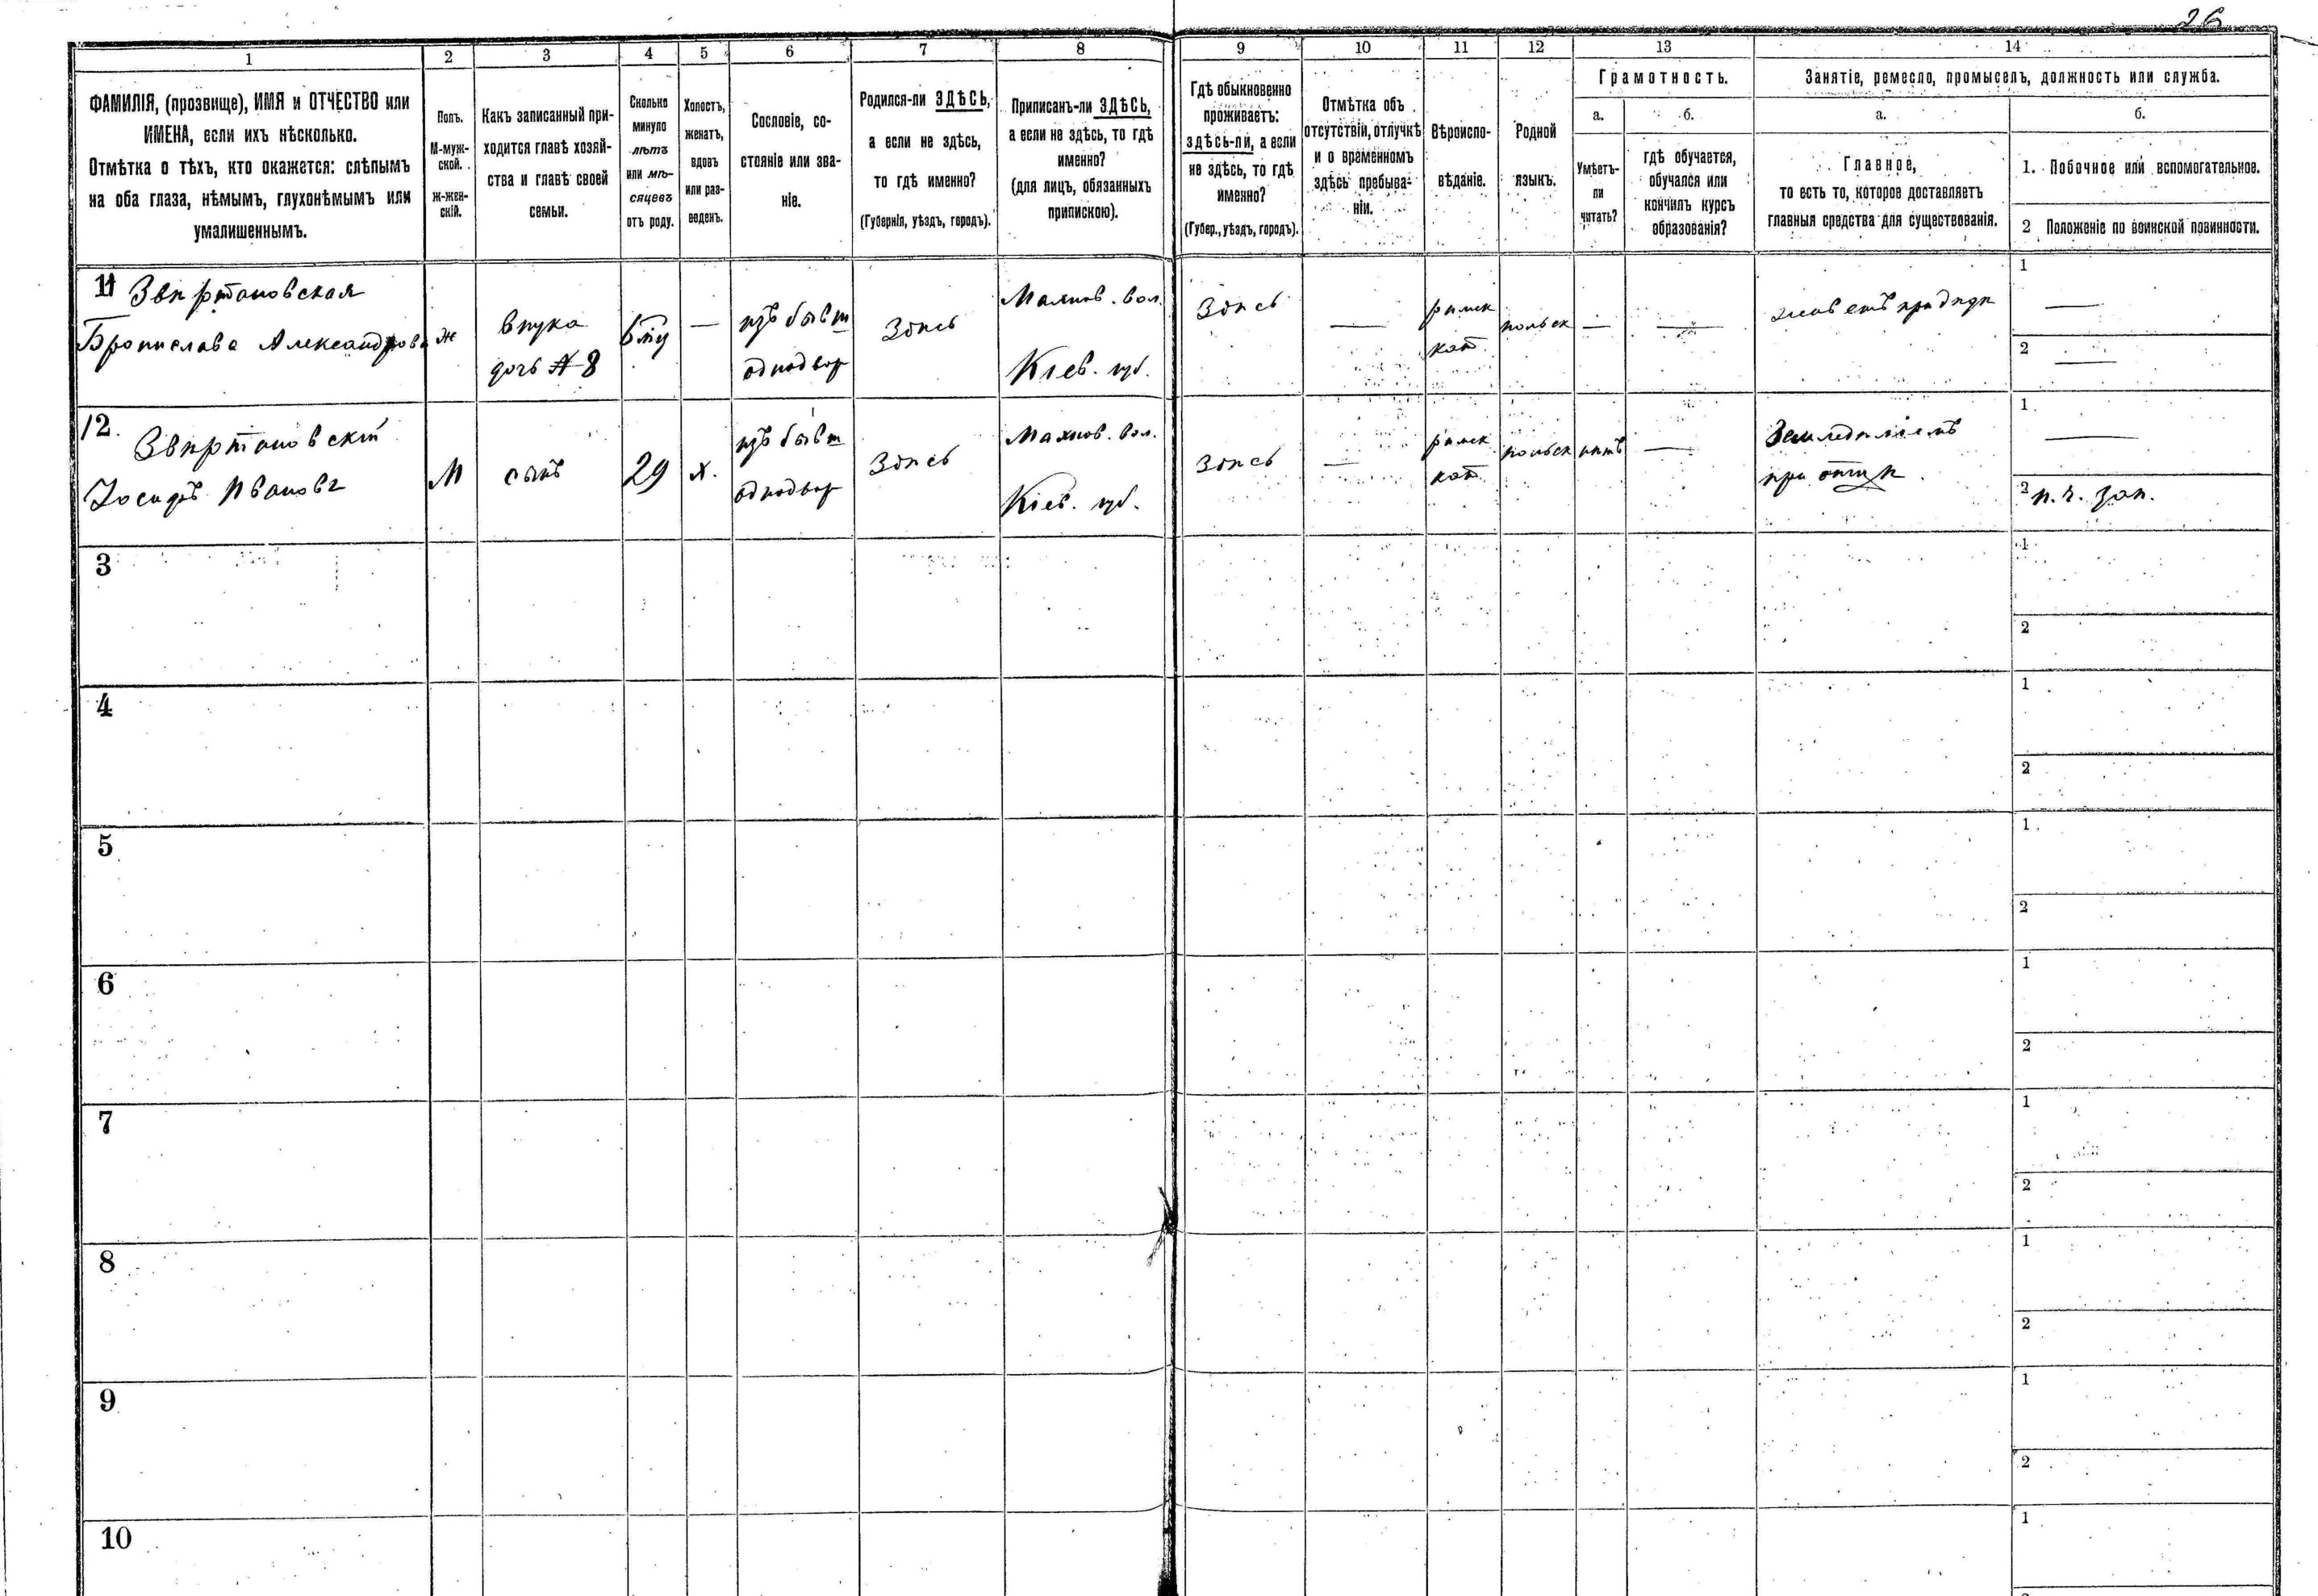 26
1 2 3 4 5 6 7 8 9 10 11 12 13 14
ФАМИЛІЯ, (прозвище), ИМЯ и ОТЧЕСТВО или
ИМЕНА, если ихъ нѣсколько.
Отмѣтка о тѣхъ, кто окажется: слѣпымъ
на оба глаза, нѣмымъ, глухонѣмымъ или
умалишеннымъ.
Полъ.
М-муж-
ской.
Ж-жен-
скій.
Какъ записанный при-
ходится главѣ хозяй-
ства и главѣ своей
семьи.
Сколько
минуло
лѣтъ
или мѣ-
сяцевъ
отъ роду.
Холостъ,
женатъ,
вдовъ
или раз-
веденъ.
Сословіе, со-
стояніе или зва-
ніе.
Родился-ли ЗДѢСЬ,
а если не здѣсь,
то гдѣ именно?
(Губернія, уѣздъ, городъ).
Приписанъ-ли ЗДѢСЬ,
а если не здѣсь, то гдѣ
именно?
(для лицъ, обязанныхъ
припискою).
Гдѣ обыкновенно
проживаетъ:
здѣсь-ли, а если
не здѣсь, то гдѣ
именно?
(Губер., уѣздъ, городъ).
Отмѣтка объ
отсутствіи, отлучкѣ
и о временномъ
здѣсь пребыва-
ніи.
Вѣроиспо-
вѣданіе.
Родной
языкъ.
Грамотность.
а.
Умѣетъ-
ли
читать?
б.
гдѣ обучается,
обучался или
кончилъ курсъ
образованія?
Занятіе, ремесло, промыселъ, должность или служба.
а.
Главное,
то есть то, которое доставляетъ
главныя средства для существованія.
б.
1. Побочное или вспомогательное.
2 Положеніе по воинской повинности.
11 Звѣртановская
Бронислава Александрова
ж
внука
дочь № 8
—
изъ бывш
однодвор
Здѣсь
Махнов. вол.
Кіев. губ.
Здѣсь
—
римск
кат
польск
—
—
живетъ при дѣдѣ
1
—
2
—
12. Звѣртановскій
Іосифъ Ивановъ
М
сынъ
29
х.
изъ бывш
однодвор
Здѣсь
Махнов. вол.
Кіев. губ.
Здѣсь
—
римск
кат
польск
нѣтъ
—
Земледѣліемъ
при отцѣ
1
—
2 н. ч. зап.
3
1
2
4
1
2
5
1
2
6
1
2
7
1
2
8
1
2
9
1
2
10
1